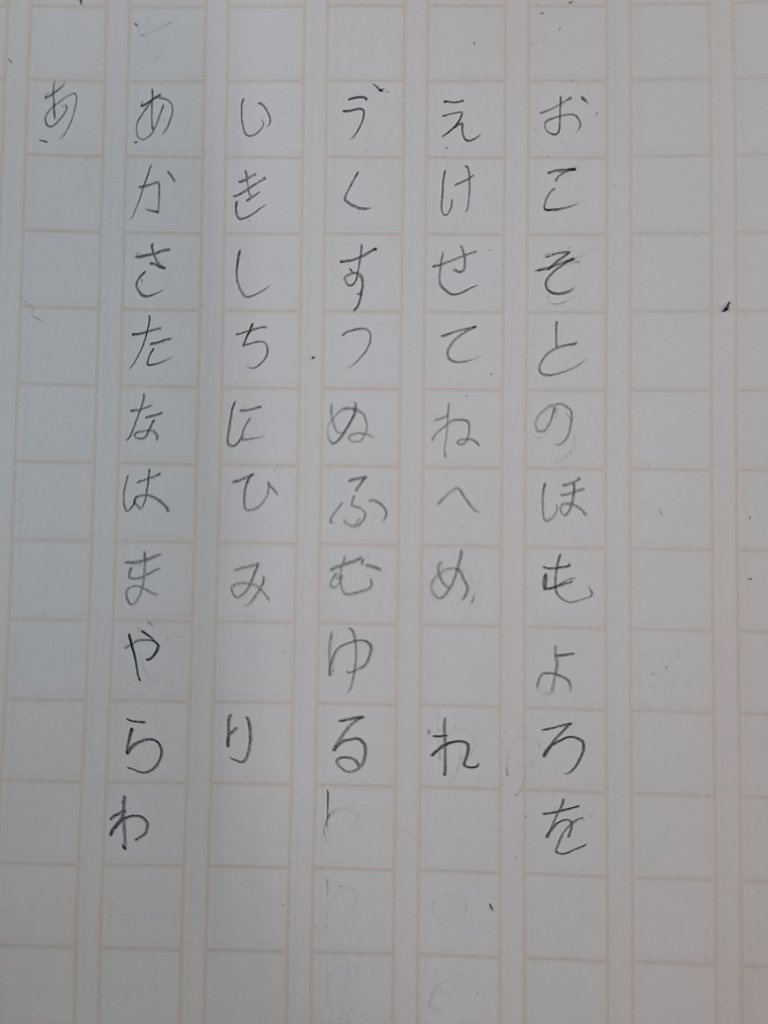 あ あ い う え お
か き く け こ
さ し す せ そ
た ち つ て と
な に ぬ ね の
は ひ ふ へ ほ
ま み む め も
や ゆ よ
ら り る れ ろ
わ を